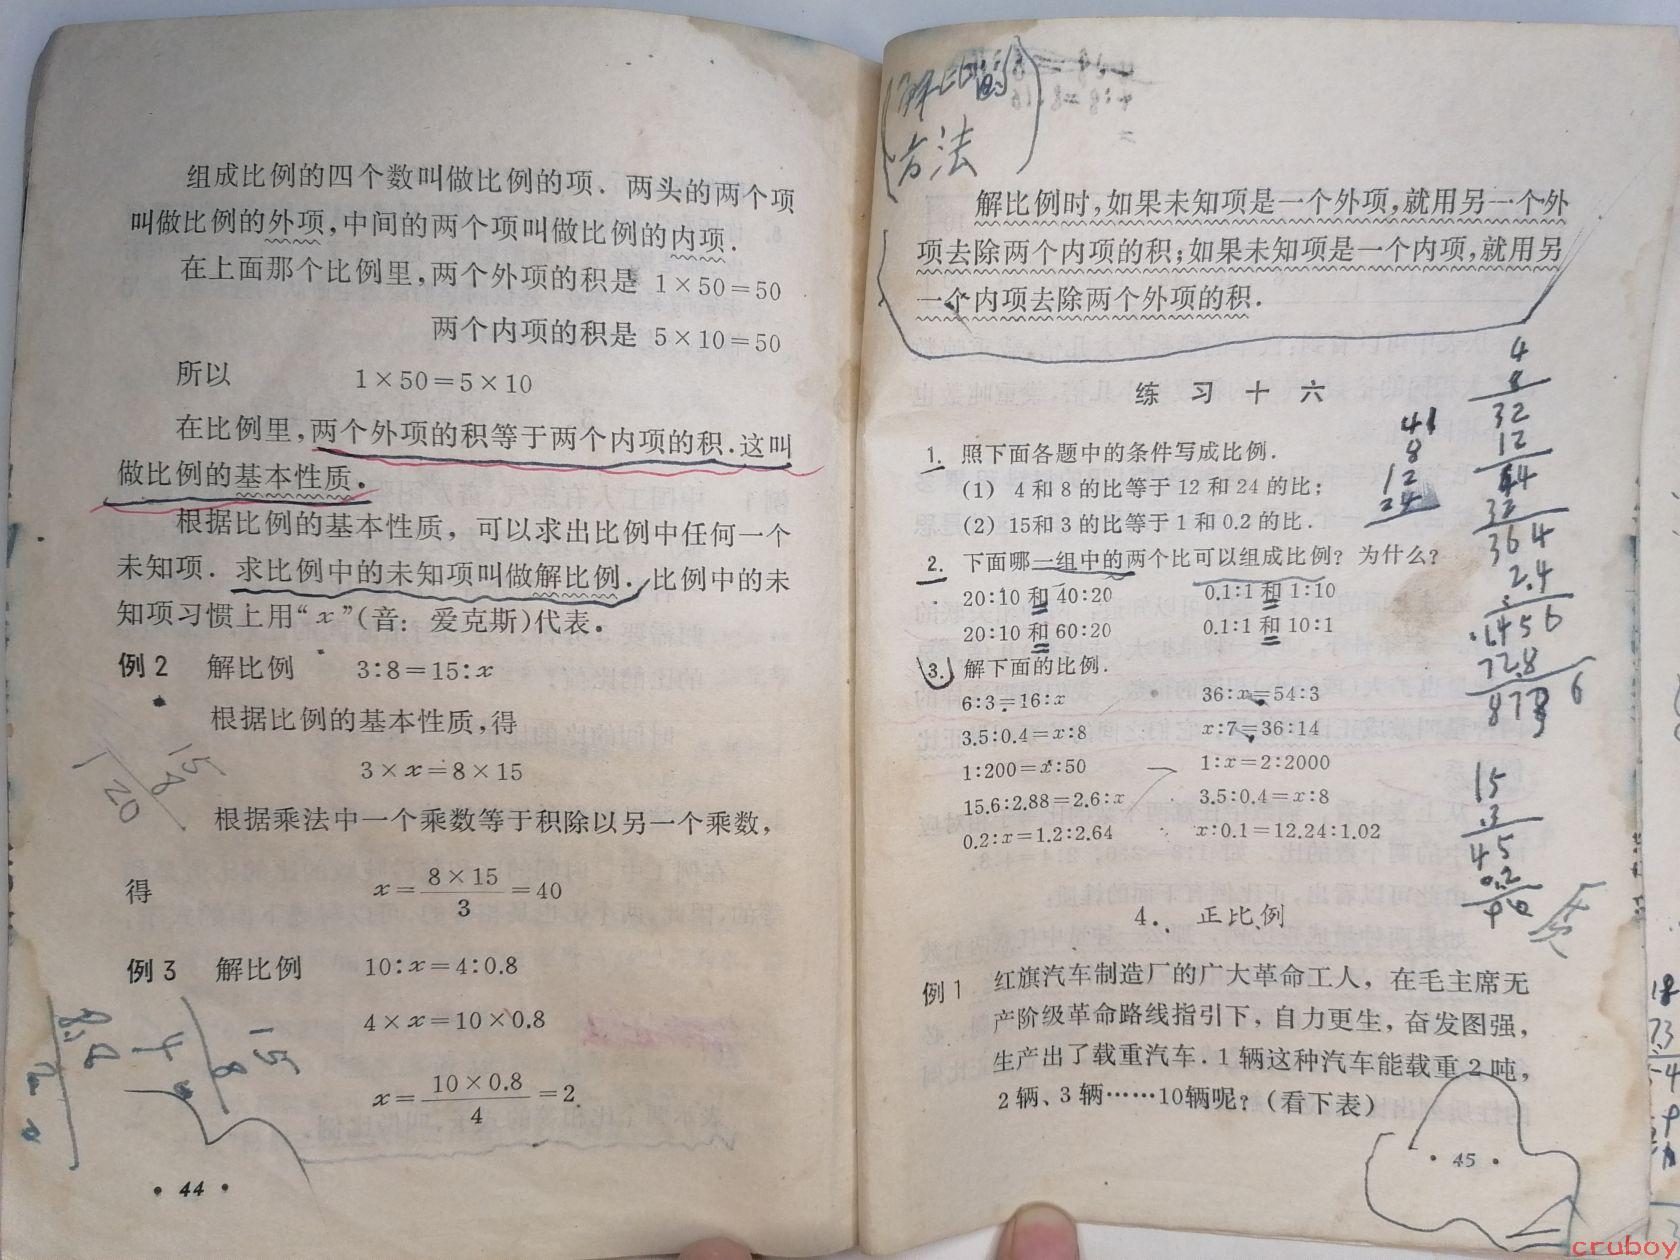 组成比例的四个数叫做比例的项. 两头的两个项
叫做比例的外项,中间的两个项叫做比例的内项.
在上面那个比例里,两个外项的积是 1×50=50
两个内项的积是 5×10=50
所以 1×50=5×10
在比例里,两个外项的积等于两个内项的积.这叫
做比例的基本性质.
根据比例的基本性质,可以求出比例中任何一个
未知项. 求比例中的未知项叫做解比例. 比例中的未
知项习惯上用“x”(音: 爱克斯)代表。
例2 解比例 3:8=15:x
根据比例的基本性质,得
3×x=8×15
根据乘法中一个乘数等于积除以另一个乘数,
得 x=8×15/3=40
例3 解比例 10:x=4:0.8
4×x=10×0.8
x=10×0.8/4=2
15
8
120
15
8
4
• 44 •
解比例的
方法
解比例时,如果未知项是一个外项,就用另一个外
项去除两个内项的积;如果未知项是一个内项,就用另
一个内项去除两个外项的积.
练习十六
1. 照下面各题中的条件写成比例.
(1) 4和8的比等于12和24的比;
(2) 15和3的比等于1和0.2的比.
2. 下面哪一组中的两个比可以组成比例? 为什么?
20:10 和 40:20 0.1:1 和 1:10
20:10 和 60:20 0.1:1 和 10:1
3. 解下面的比例.
6:3=16:x 36:x=54:3
3.5:0.4=x:8 x:7=36:14
1:200=x:50 1:x=2:2000
15.6:2.88=2.6:x 3.5:0.4=x:8
0.2:x=1.2:2.64 x:0.1=12.24:1.02
4. 正比例
例1 红旗汽车制造厂的广大革命工人,在毛主席无
产阶级革命路线指引下,自力更生,奋发图强,
生产出了载重汽车.1辆这种汽车能载重2吨,
2辆、3辆……10辆呢?(看下表)
• 45 •
4
8
32
12
64
32
364
2.4
1456
72.8
8
12
24
15
.3
45
0.2
18
73
cruboy